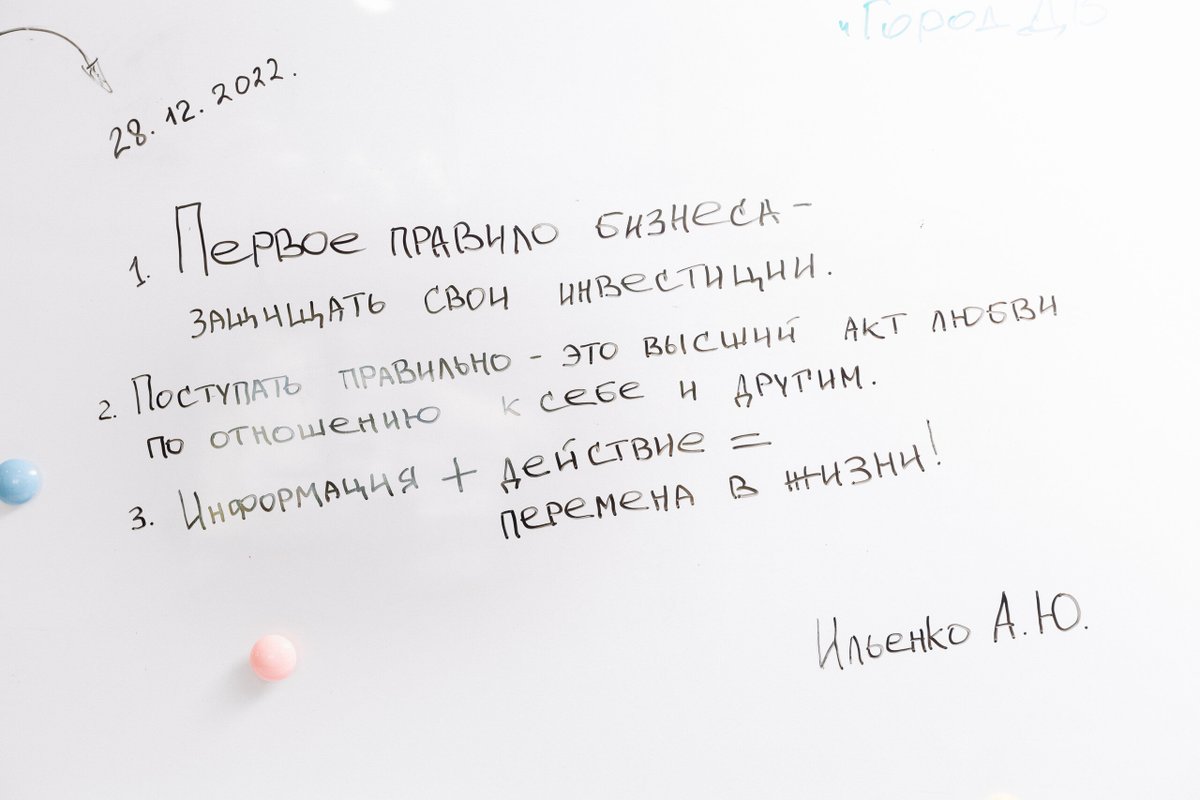 "Город
28.12.2022.
1. Первое правило бизнеса -
защищать свои инвестиции.
2. Поступать правильно - это высший акт любви
по отношению к себе и другим.
3. Информация + действие =
перемена в жизни!
Ильенко А.Ю.